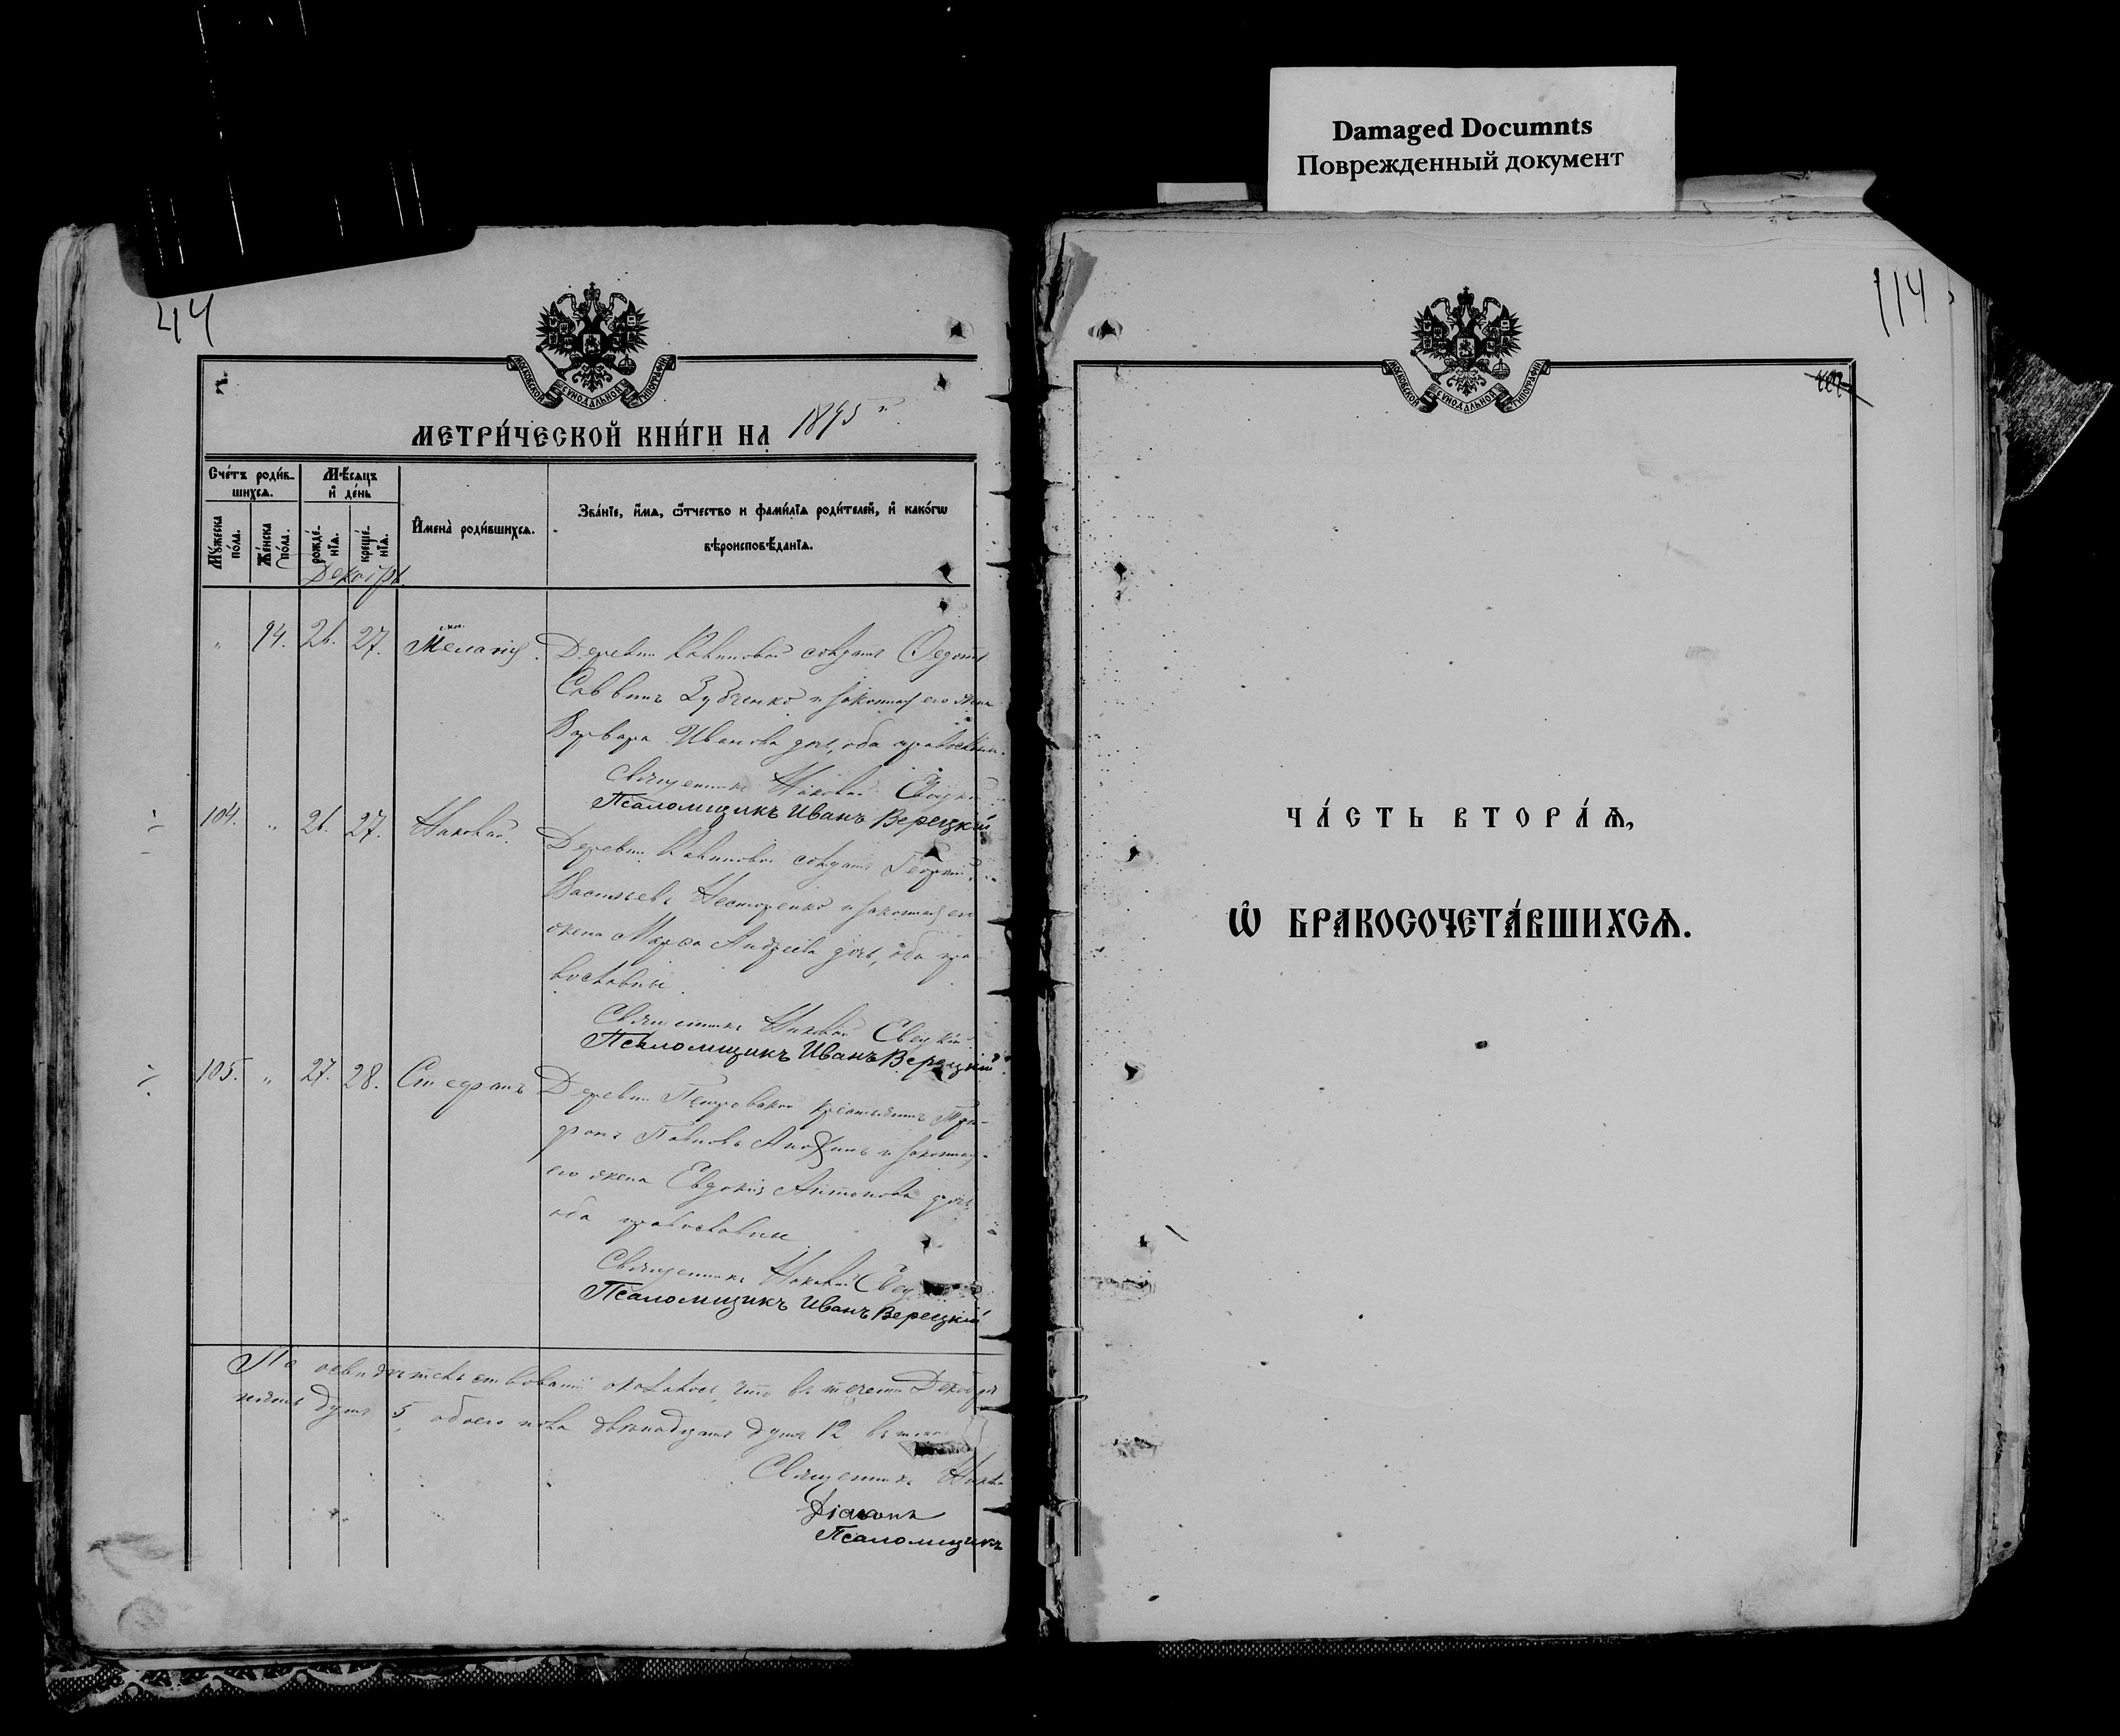 Damaged Documnts
Поврежденный документ
44
МОСКОВСКОЙ СѴНОДАЛЬНОЙ ТИПОГРАФІИ
МЕТРИ́ЧЕСКОЙ КНИ́ГИ НА 1895 г.
Сче́тъ роди́в-
шихсѧ.
Мѣ́сѧцъ
и҆ де́нь
Мꙋ́жеска
по́ла.
Же́нска
по́ла.
рожде́-
нїѧ.
креще́-
нїѧ.
И҆мена̀ роди́вшихсѧ.
Зва́нїе, и҆́мѧ, ѻ҆́тчество и фами́лїѧ роди́телей, и҆ како́гѡ
вѣроисповѣ́данїѧ.
Декабрь
" 94. 26. 27. Меланія. Деревни солдатъ Федотъ
Саввинъ Зубченко и законная его жена
Варвара Иванова дочь, оба православны.
Священникъ Николай
Псаломщикъ Иванъ Верецкій
104. " 26. 27. Николай. Деревни солдатъ Георгій
Васильевъ Нестеренко и законная его
жена Марѳа Андреева дочь, оба пра-
вославны.
Священникъ Николай
Псаломщикъ Иванъ Верецкій
105. " 27. 28. Стефанъ Деревни Петровской крестьянинъ Три-
фонъ Павловъ и законная
его жена Евдокія Антонова дочь,
оба православны
Священникъ Николай
Псаломщикъ Иванъ Верецкій
По освидѣтельствованіи оказалось, что въ теченіи Декабря
пять душъ 5, обоего пола двѣнадцать душъ 12
Священникъ
Діаконъ
Псаломщикъ
114
МОСКОВСКОЙ СѴНОДАЛЬНОЙ ТИПОГРАФІИ
ЧА́СТЬ ВТОРА́Ѧ,
Ѽ БРАКОСОЧЕТА́ВШИХСѦ.